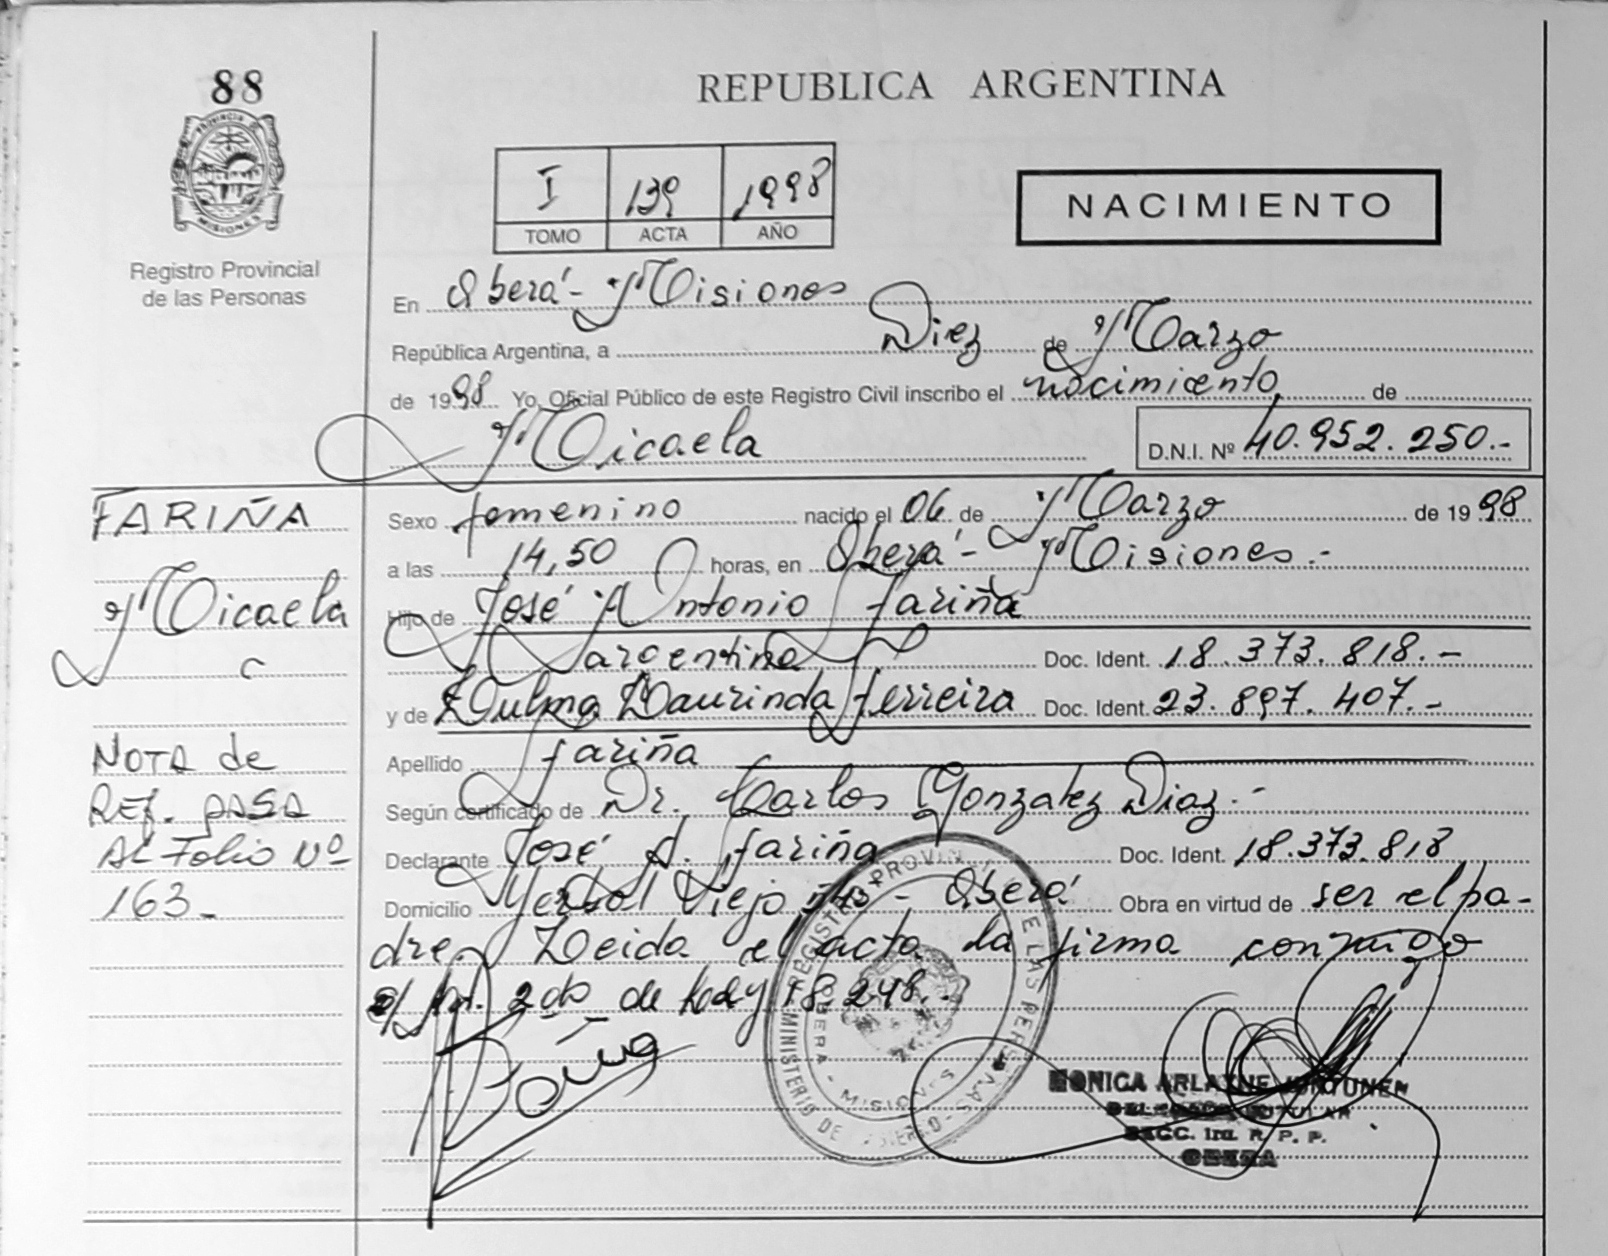 88
REPUBLICA ARGENTINA
PROVINCIA DE
MISIONES
Registro Provincial
de las Personas
I 139 1998
TOMO ACTA AÑO
NACIMIENTO
En Oberá - Misiones
República Argentina, a Diez de Marzo
de 1998 Yo, Oficial Público de este Registro Civil inscribo el nacimiento de
Micaela D.N.I. Nº 40.952.250.-
FARIÑA
Micaela
C
NOTA de
REF. PASA
AL Folio Nº
163-
Sexo femenino nacido el 06 de Marzo de 1998
a las 14,50 horas, en Oberá - Misiones.-
Hijo de José Antonio Fariña
argentino Doc. Ident. 18.373.818.-
y de Daurinda Ferreira Doc. Ident. 23.897.407.-
Apellido Fariña
Según certificado de Dr. Carlos Gonzalez Diaz.-
Declarante José A. Fariña Doc. Ident. 18.373.818
Domicilio Yerbal Viejo - Oberá Obra en virtud de ser el pa-
dre. Leida el acta la firma conmigo
2do de Ley 18.248.-
MINISTERIO DE GOBIERNO - REGISTRO PROVINCIAL DE LAS PERSONAS
OBERA - MISIONES
MONICA
TITULAR
SECC. Ira. R. P. P.
OBERA